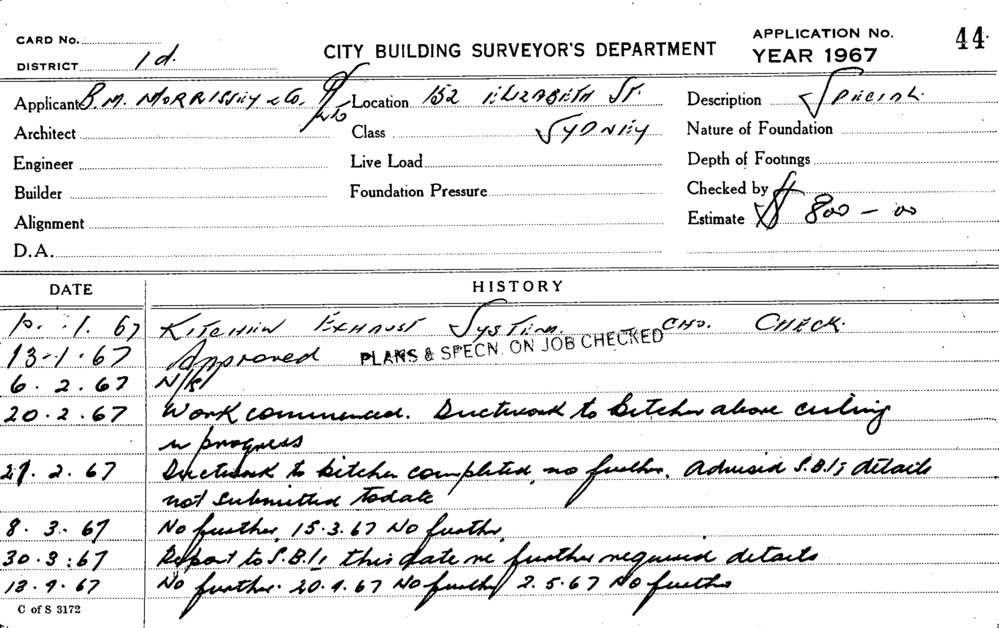 CARD No.
DISTRICT 1d.
CITY BUILDING SURVEYOR'S DEPARTMENT
APPLICATION No. 44.
YEAR 1967
Applicant B. M. MORRISSEY & Co. P/L Location 152 ELIZABETH ST. Description SPECIAL.
Architect Class SYDNEY Nature of Foundation
Engineer Live Load Depth of Footings
Builder Foundation Pressure Checked by
Alignment Estimate $ 800 - 00
D.A.
DATE HISTORY
10. 1. 67 KITCHEN EXHAUST SYSTEM. CHO. CHECK.
13-1-67 Approved PLANS & SPECN. ON JOB CHECKED
6. 2. 67 N/S
20.2.67 Work commenced. Ductwork to kitchen above ceiling
in progress
27. 2. 67 Ductwork to kitchen completed, no further. Advised S.B.I; details
not submitted todate
8. 3. 67 No further. 15.3.67 No further.
30.3.67 Report to S.B.I; this date re further required details
13.4.67 No further. 20.4.67 No further 2.5.67 No further
C of S 3172